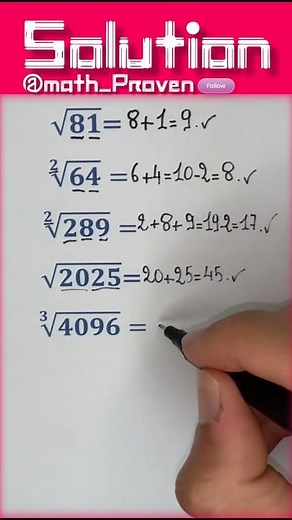 Solution
@math_Proven Follow
√81 = 8+1=9.✓
²√64 = 6+4=10-2=8.✓
²√289 = 2+8+9=19-2=17.✓
√2025 = 20+25=45.✓
³√4096 =